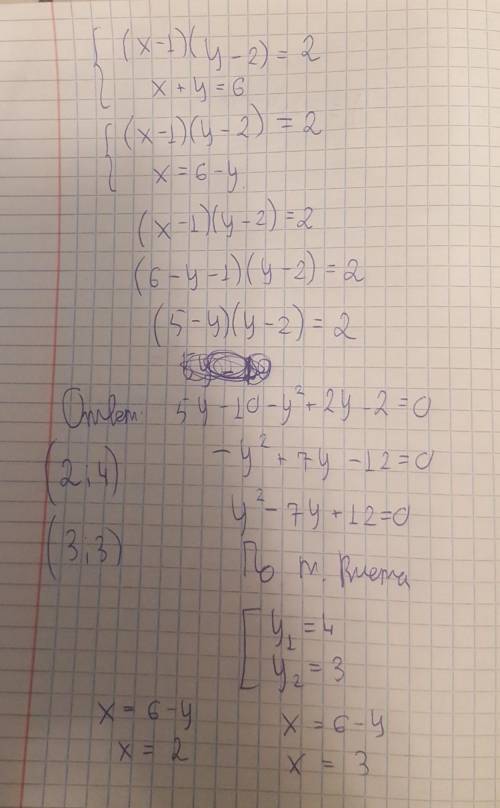 (x-1)(y-2)=2
x+y=6
(x-1)(y-2)=2
x=6-y
(x-1)(y-2)=2
(6-y-1)(y-2)=2
(5-y)(y-2)=2
Ответ: 5y-10-y²+2y-2=0
(2;4)
-y²+7y-12=0
y²-7y+12=0
(3;3)
По т. Виета
y₁=4
y₂=3
x=6-y
x=2
x=6-y
x=3